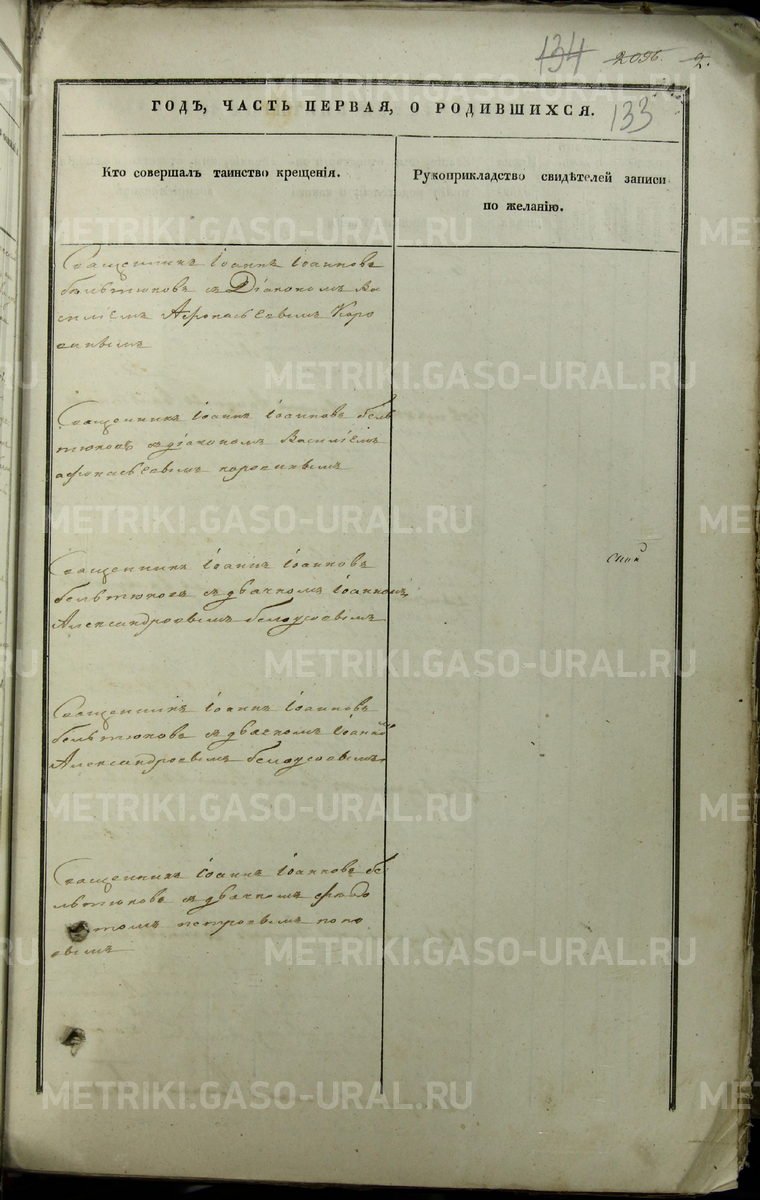 134 2096. 2.
133
ГОДЪ, ЧАСТЬ ПЕРВАЯ, О РОДИВШИХСЯ.
Кто совершалъ таинство крещенія.
Рукоприкладство свидѣтелей записи
по желанію.
Священникъ Іоаннъ Іоанновъ
бельтюковъ съ Діакономъ Ва
силіемъ Афонасьевымъ Коро
Священникъ Іоаннъ Іоанновъ бель
тюковъ съ діакономъ Василіемъ
афонасьевымъ
Священникъ Іоаннъ Іоанновъ
бельтюковъ съ дьячкомъ Іоанномъ
Александровымъ белоусовымъ
Священникъ Іоаннъ Іоанновъ
бельтюковъ съ дьячкомъ Іоанномъ
Александровымъ белоусовымъ
Священникъ Іоаннъ Іоанновъ бе
льтюковъ съ дьячкомъ
петровымъ попо
вымъ
METRIKI.GASO-URAL.RU